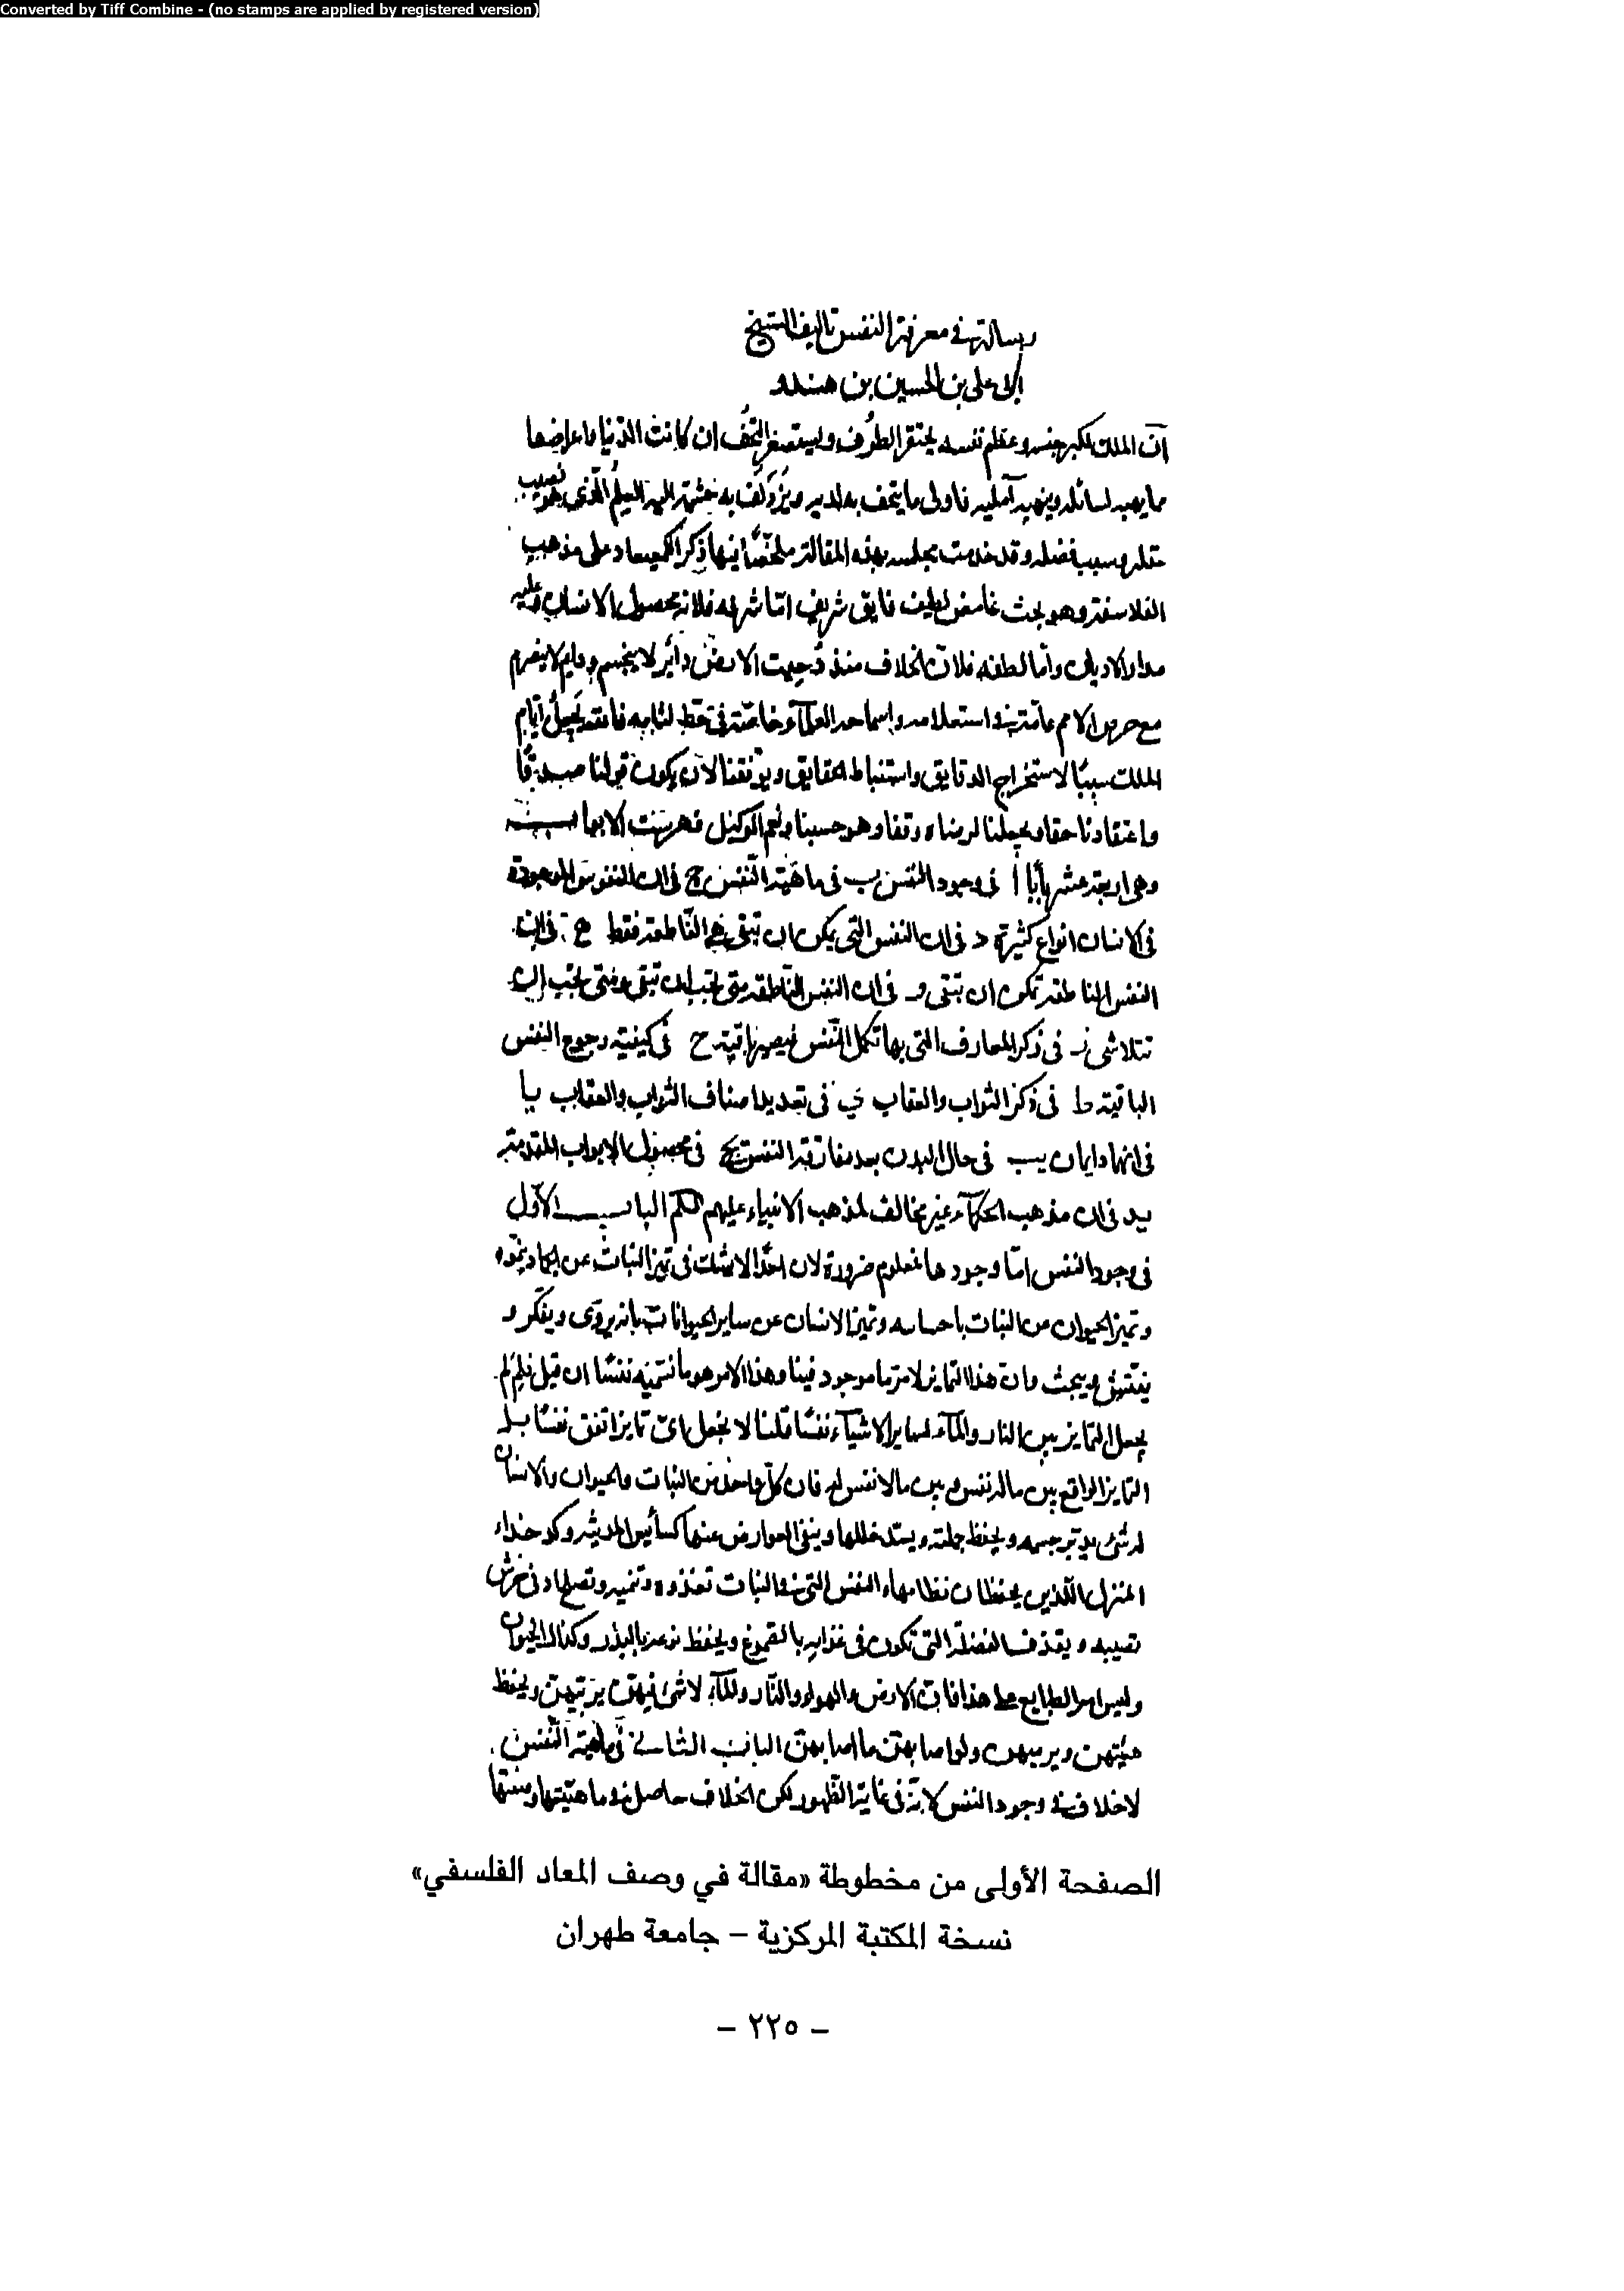 Converted by Tiff Combine - (no stamps are applied by registered version)
رسالة في معرفة النفس تاليف الشيخ
ابى على بن الحسين بن هندو
ان الملك لكبر جنسه وعظم نفسه يحتقر الطرف ويستصغر التحف ان كانت الدنيا باعراضها
مما يهبه لسائله وينهبه آمليه فاولى ما يتحف به لديه ويزدلف به حشمة اليه العلم الذى هو نصيب
عقله وسبب فضله وقد خدمت مجلسه بهذه المقالة ملخصا فيها ذكر المعاد على مذهب
الفلاسفة وهو بحث غامض لطيف فايق شريف اما شرفه فلانه محصول الانسان وعليه
مدار الاديان واما لطفه فلان الخلاف منذ دحيت الارض دائر لا ينجسم ودايم لا ينصرم
مع حرص الامم عامة فى استعلامه العلمآء خاصة فى فالله يجعل ايام
الملك سببا لاستخراج الدقايق واستنباط الحقايق ويوفقنا لان يكون قولنا صدقا
واعتقادنا حقا ويجعلنا لرضاه وقفا وهو حسبنا ونعم الوكيل فهرست الابواب
وهى اربعة عشر بابا ا فى وجود النفس ب فى ماهية النفس ج فى ان النفوس الموجودة
فى الانسان انواع كثيرة د فى ان النفس التى يمكن ان تبقى هى الناطقة فقط ه فى ان
النفس الناطقة يمكن ان تبقى و فى ان النفس الناطقة متى يجب ان تبقى ومتى يجب ان
تتلاشى ز فى ذكر المعارف التى بها تكمل النفس فيصير باقية ح فى كيفية رجوع النفس
الباقية ط فى ذكر الثواب والعقاب ى فى تعديد اصناف الثواب والعقاب يا
فى انهما دايمان يب فى حال البدن بعد مفارقة النفس يج فى محصول الابواب المتقدمة
يد فى ان مذهب الحكمآء غير مخالف لمذهب الانبياء عليهم السلم الباب الاول
فى وجود النفس اما وجودها فمعلوم ضرورة لان احدا لا يشك فى تميز النبات عن الجماد بنموه
وتميز الحيوان من النبات باحساسه وتميز الانسان عن ساير الحيوانات بانه يروى ويفكر و
يفتش ويبحث وان هذا التمايز لامر ما موجود فينا وهذا الامر هو ما نسميه نفسا ان قيل فلم لم
يجعل التمايز بين النار والمآء وساير الاشيآء نفسا قلنا لا نجعل اى تمايز اتفق نفسا بل
التمايز الواقع بين ما له نفس وبين ما لا نفس له فان كل واحد من النبات والحيوان والانسان
له شئ يدبر جسمه ويحفظ جملته ويسد خللها وينفى العوارض عنها كسائس المدينة وكدخداء
المنزل اللذين يحفظان نظامهما النفس التى فى النبات تغذوه وتنميه وتصلحه
تصيبه ويقذف الفضلة التى تكون فى غذايه بالصموغ ويحفظ نوعه بالبذر وكذلك الحيوان
وليس امر الطبايع على هذا فان الارض والهواء والنار والمآء لا شئ فيهن يرتبهن ويحفظ
هيئتهن ويربيهن ولو اصابهن ما اصابهن الباب الثانى فى ماهية النفس
لا خلاف فى وجود النفس لانه فى غاية الظهور لكن الخلاف حاصل فى ماهيتها
الصفحة الأولى من مخطوطة «مقالة في وصف المعاد الفلسفي»
نسخة المكتبة المركزية – جامعة طهران
– ٢٢٥ –